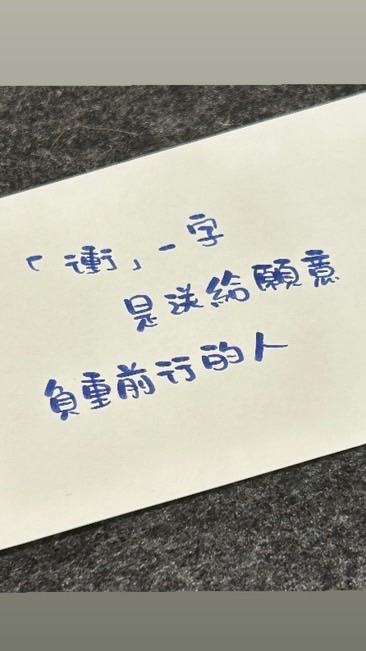 「衝」一字
是送給願意
負重前行的人